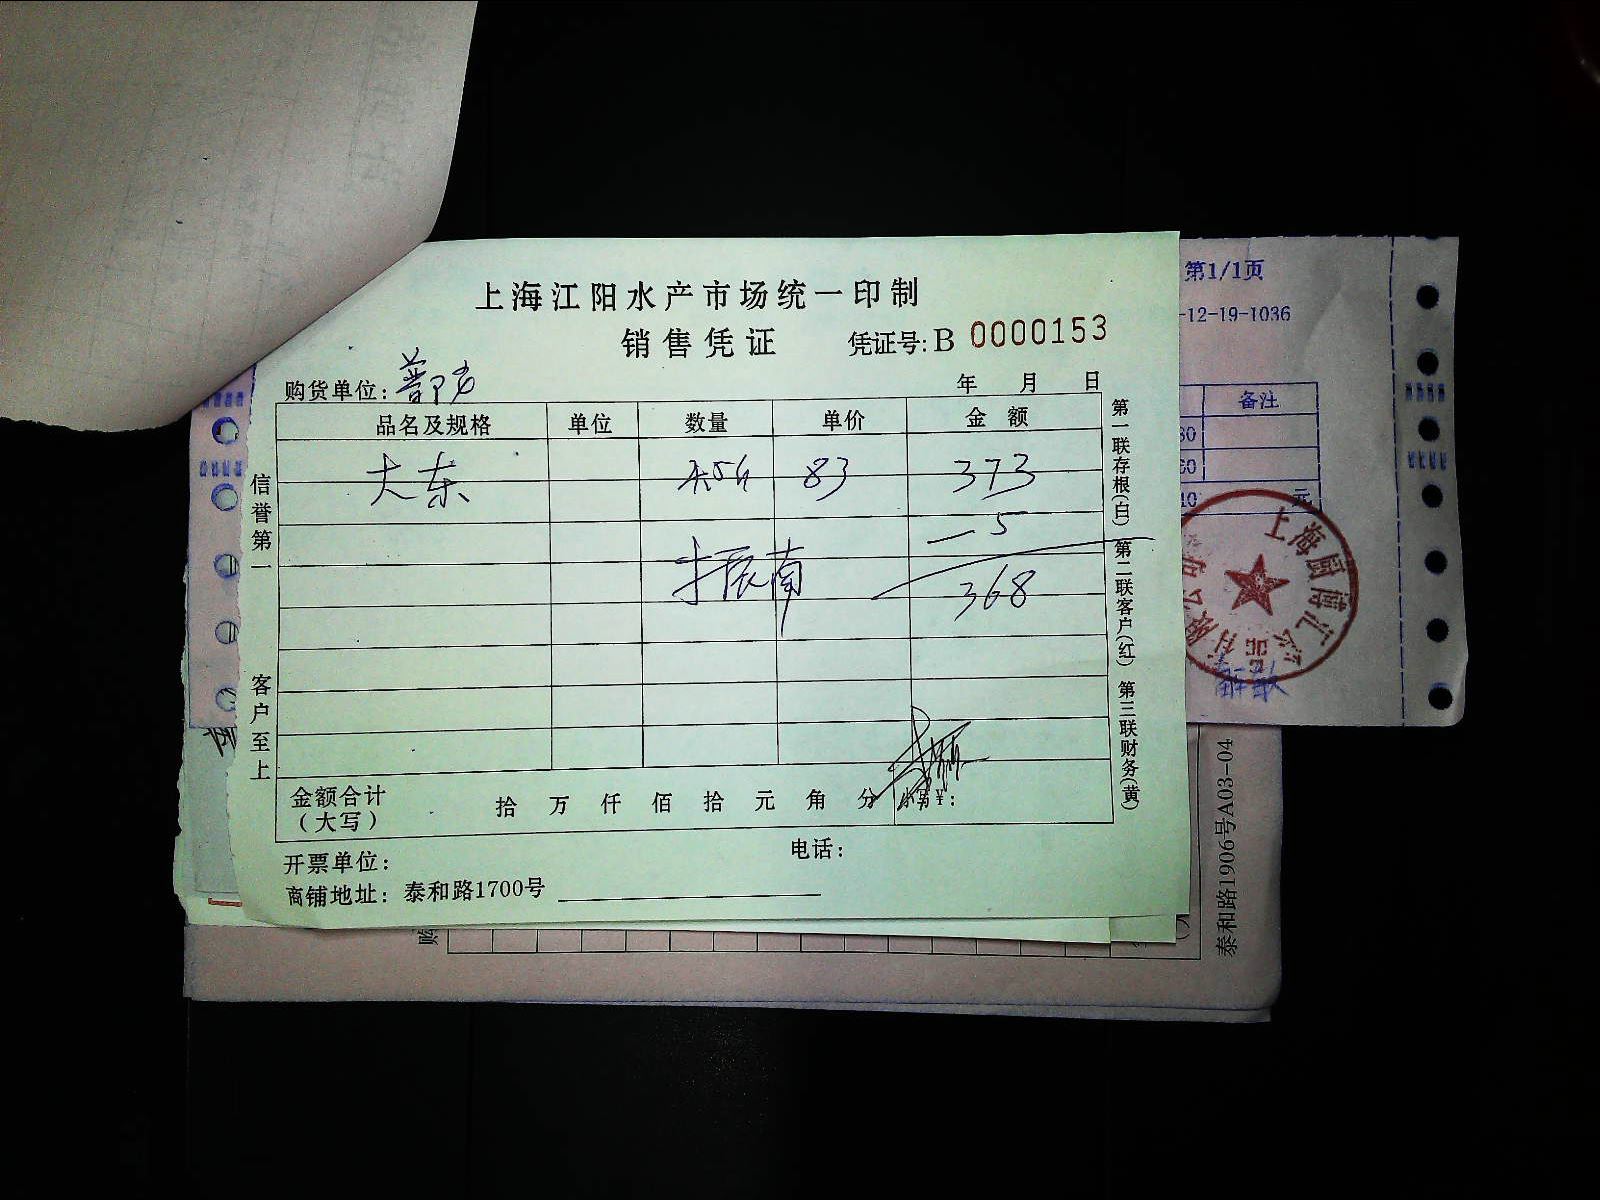 上海江阳水产市场统一印制
销售凭证
凭证号:B 0000153
购货单位:
年 月 日
品名及规格 单位 数量 单价 金额
大东 83 373
一5
368
金额合计
(大写)
拾 万 仟 佰 拾 元 角 分 小写¥:
开票单位:
电话:
商铺地址: 泰和路1700号
信誉第一
客户至上
第一联存根(白) 第二联客户(红) 第三联财务(黄)
第1/1页
-12-19-1036
备注
元
上海
泰和路1906号A03-04
购